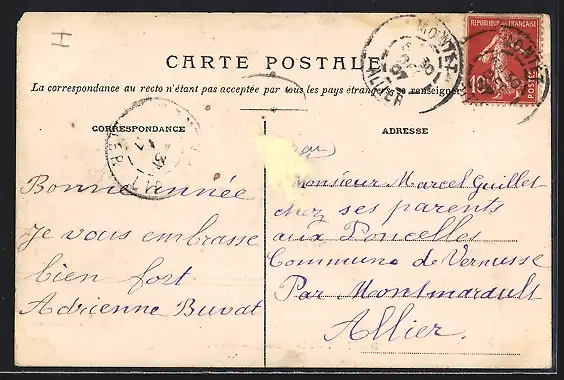 H
CARTE POSTALE
La correspondance au recto n'étant pas acceptée par tous les pays étrangers, se renseigner
REPUBLIQUE FRANÇAISE
10
POSTES
ALLIER
CORRESPONDANCE
ADRESSE
Bonne année
Je vous embrasse
bien fort
Adrienne Buvat
Monsieur Marcel Guillet
chez ses parents
aux Poncelles
Commune de Vernusse
Par Montmarault
Allier.